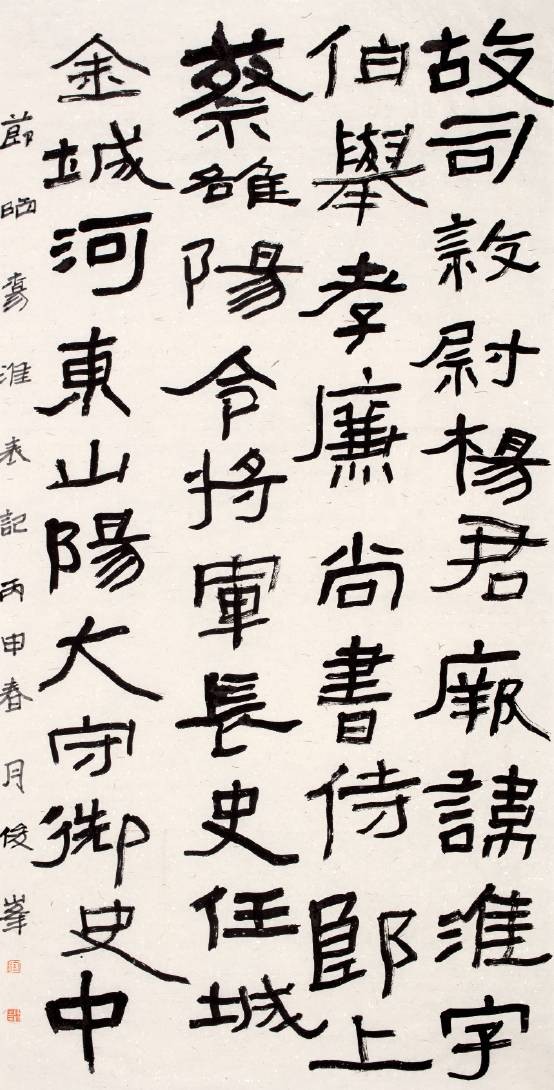 故司尉楊君厥諱淮字
伯舉孝廉尚書侍郎上
蔡雒陽令將軍長史任城
金城河東山陽大守御史中
節淮表記丙申春月俊峯